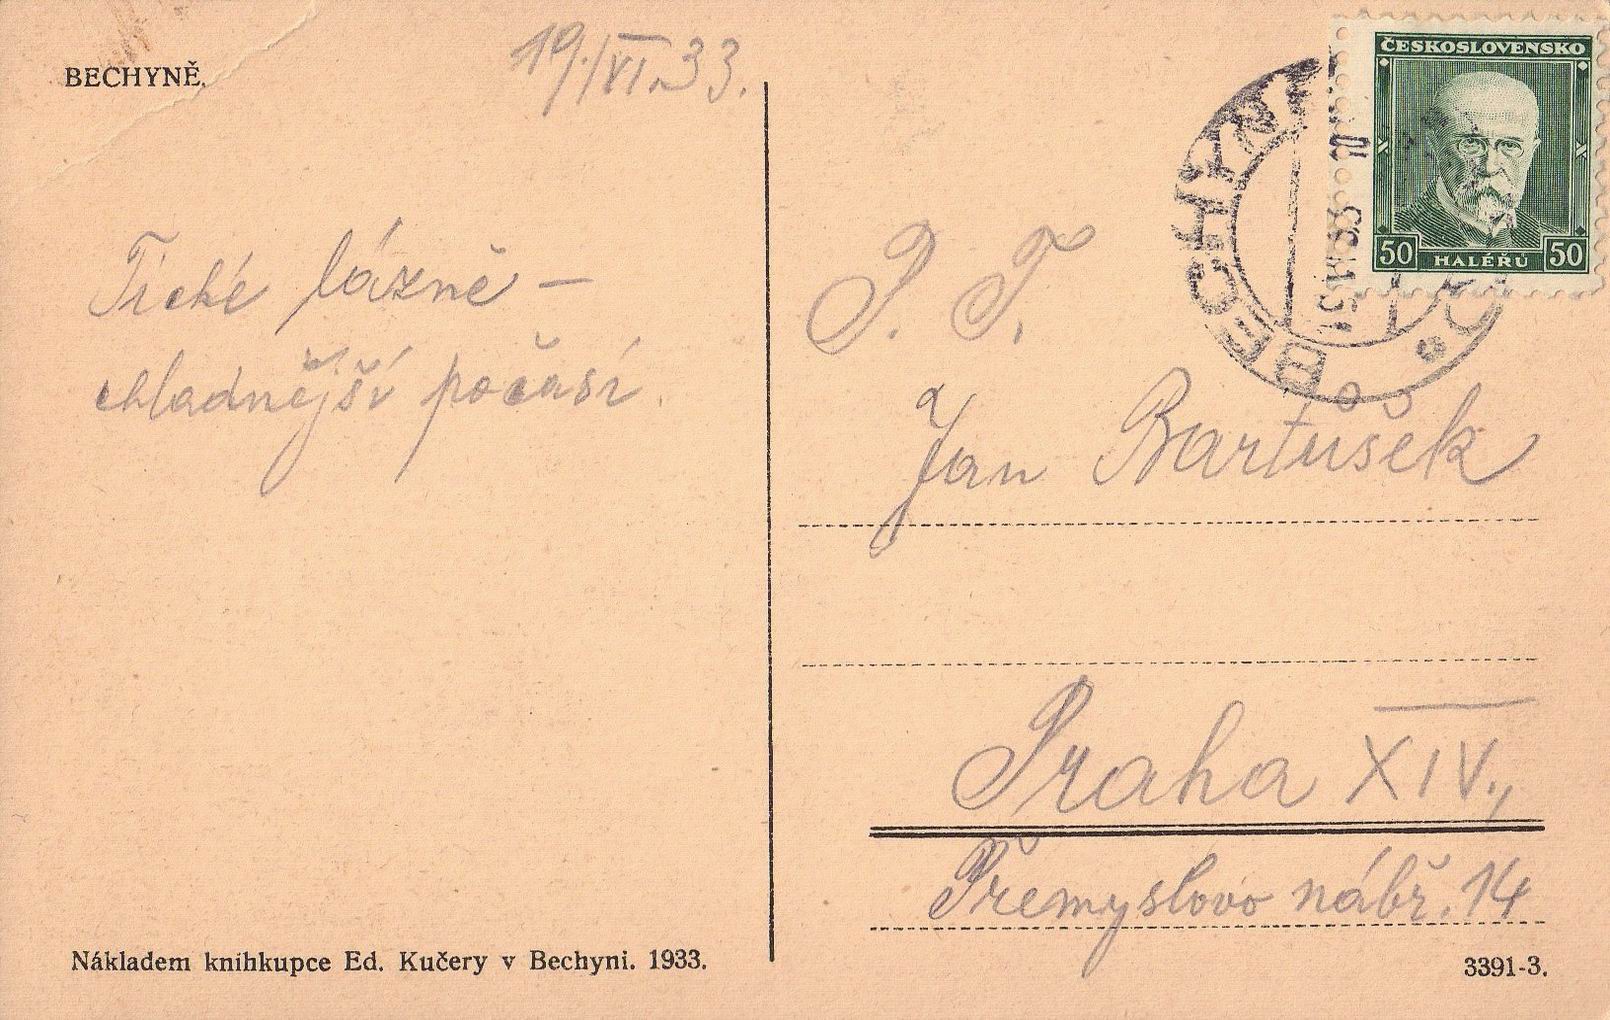 BECHYNĚ.
19./VI.33.
Tiché lázně –
chladnější počasí.
ČESKOSLOVENSKO
50 HALÉŘŮ 50
BECHYNĚ
P. T.
Jan Bartůšek
Praha XIV.,
Přemyslovo nábř. 14
Nákladem knihkupce Ed. Kučery v Bechyni. 1933.
3391-3.